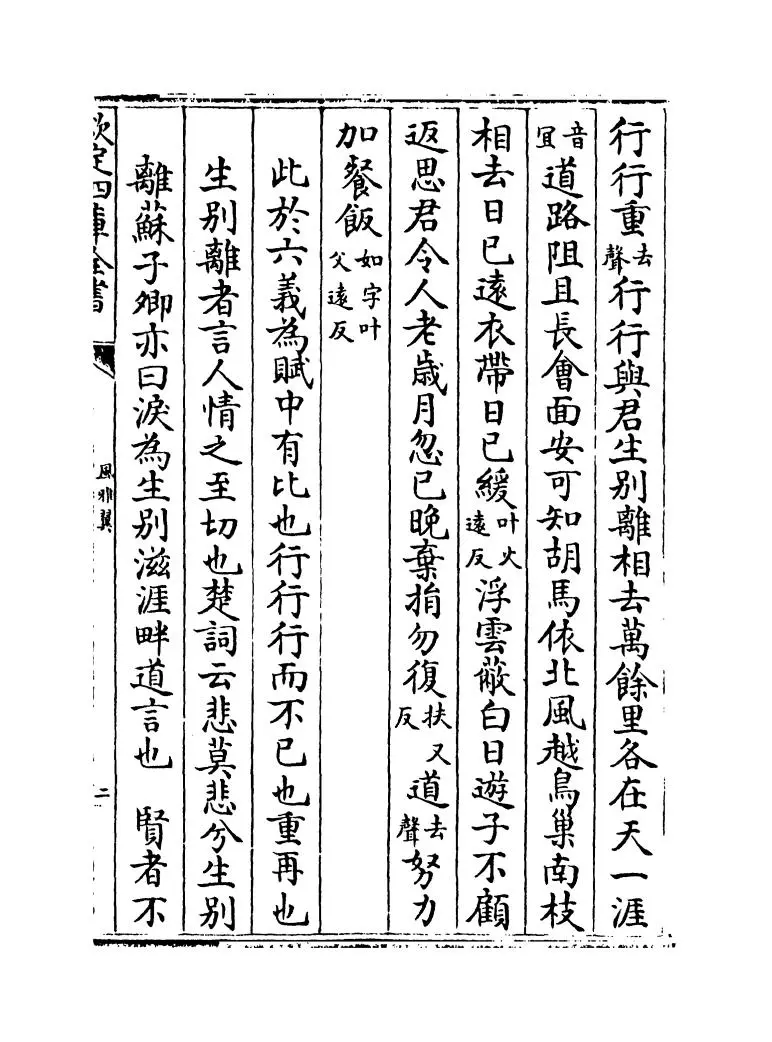 行行重去聲行行與君生別離相去萬餘里各在天一涯
音宜道路阻且長會面安可知胡馬依北風越鳥巢南枝
相去日已遠衣帶日已緩叶火遠反浮雲蔽白日遊子不顧
返思君令人老歳月忽已晩棄捐勿復扶又反道去聲努力
加餐飯如字叶父遠反
此於六義為賦中有比也行行行而不已也重再也
生別離者言人情之至切也楚詞云悲莫悲兮生別
離蘇子卿亦曰淚為生別滋涯畔道言也　賢者不
欽定四庫全書
風雅翼
二